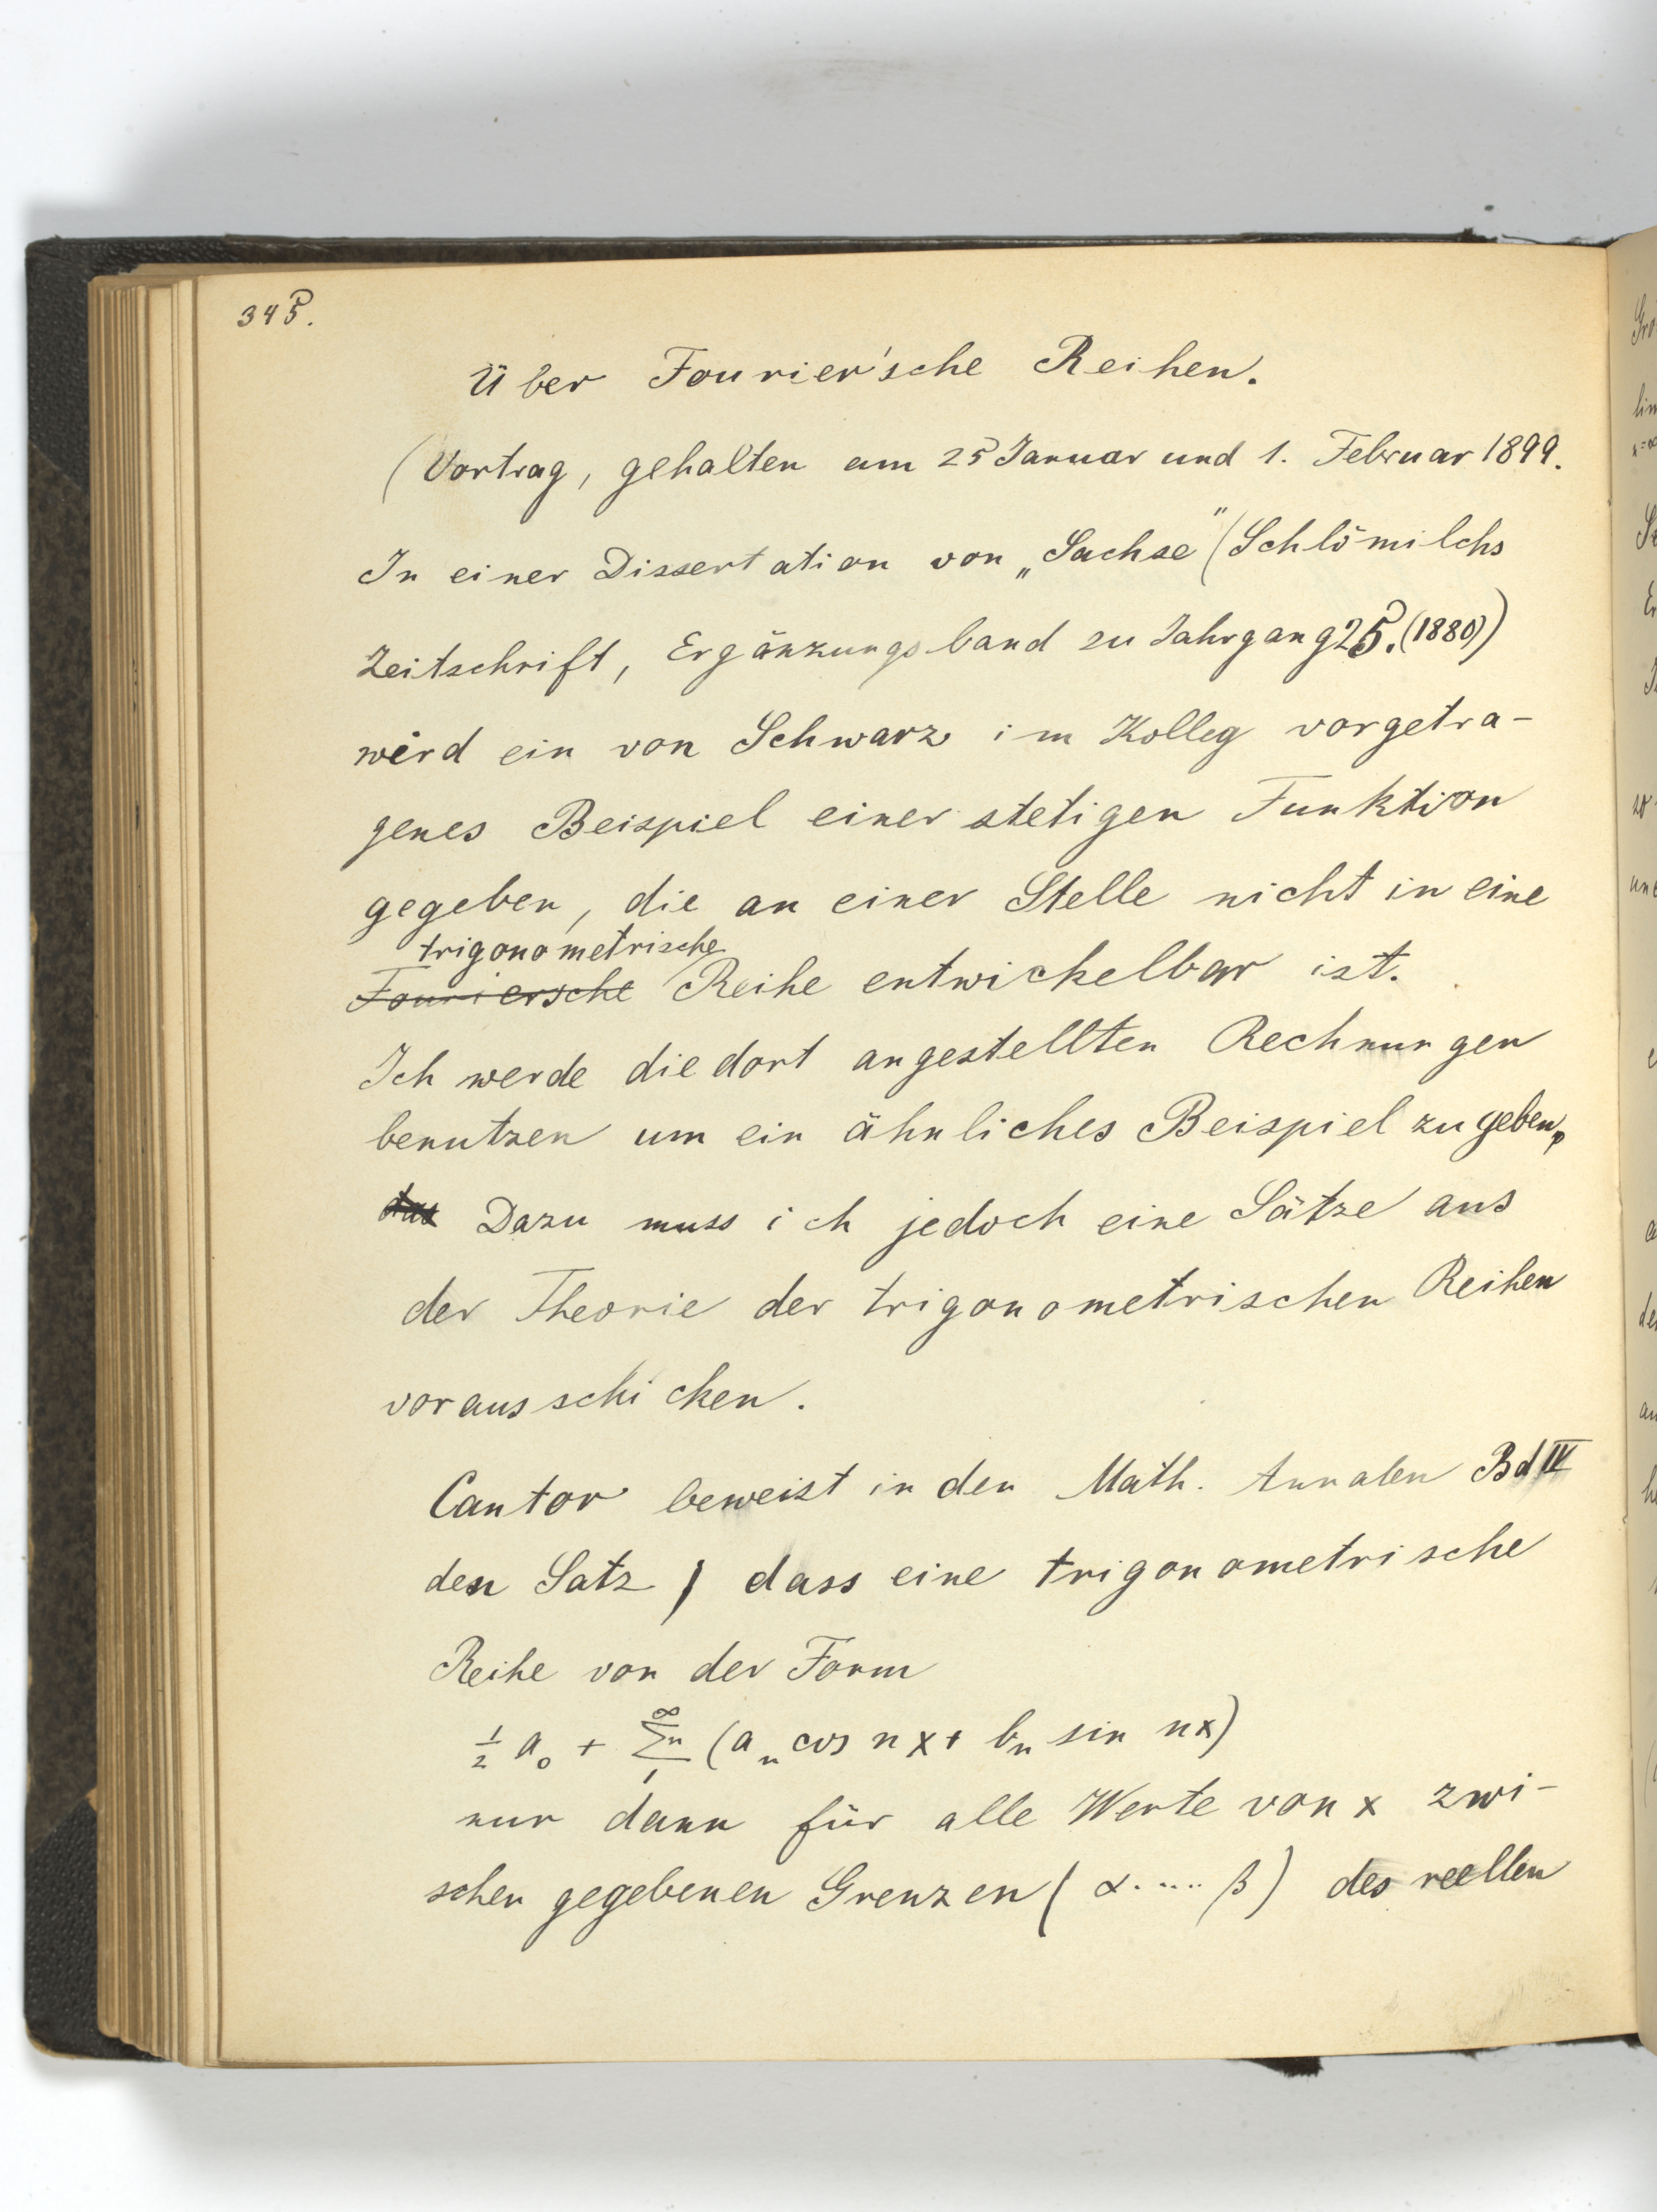 345.
Über Fourier'sche Reihen.
(Vortrag, gehalten am 25 Januar und 1. Februar 1899.
In einer Dissertation von „Sachse" (Schlömilchs
Zeitschrift, Ergänzungsband zu Jahrgang 25. (1880))
wird ein von Schwarz im Kolleg vorgetra-
genes Beispiel einer stetigen Funktion
gegeben, die an einer Stelle nicht in eine
trigonometrische
Fouriersche Reihe entwickelbar ist.
Ich werde die dort angestellten Rechnungen
benutzen um ein ähnliches Beispiel zu geben,
das Dazu muss ich jedoch eine Sätze aus
der Theorie der trigonometrischen Reihen
vorausschicken.
Cantor beweist in den Math. Annalen Bd IV
den Satz, dass eine trigonometrische
Reihe von der Form
½ a₀ + ∑ₙ₁^∞ (aₙ cos nx + bₙ sin nx)
nur dann für alle Werte von x zwi-
schen gegebenen Grenzen (α.....β) des reellen